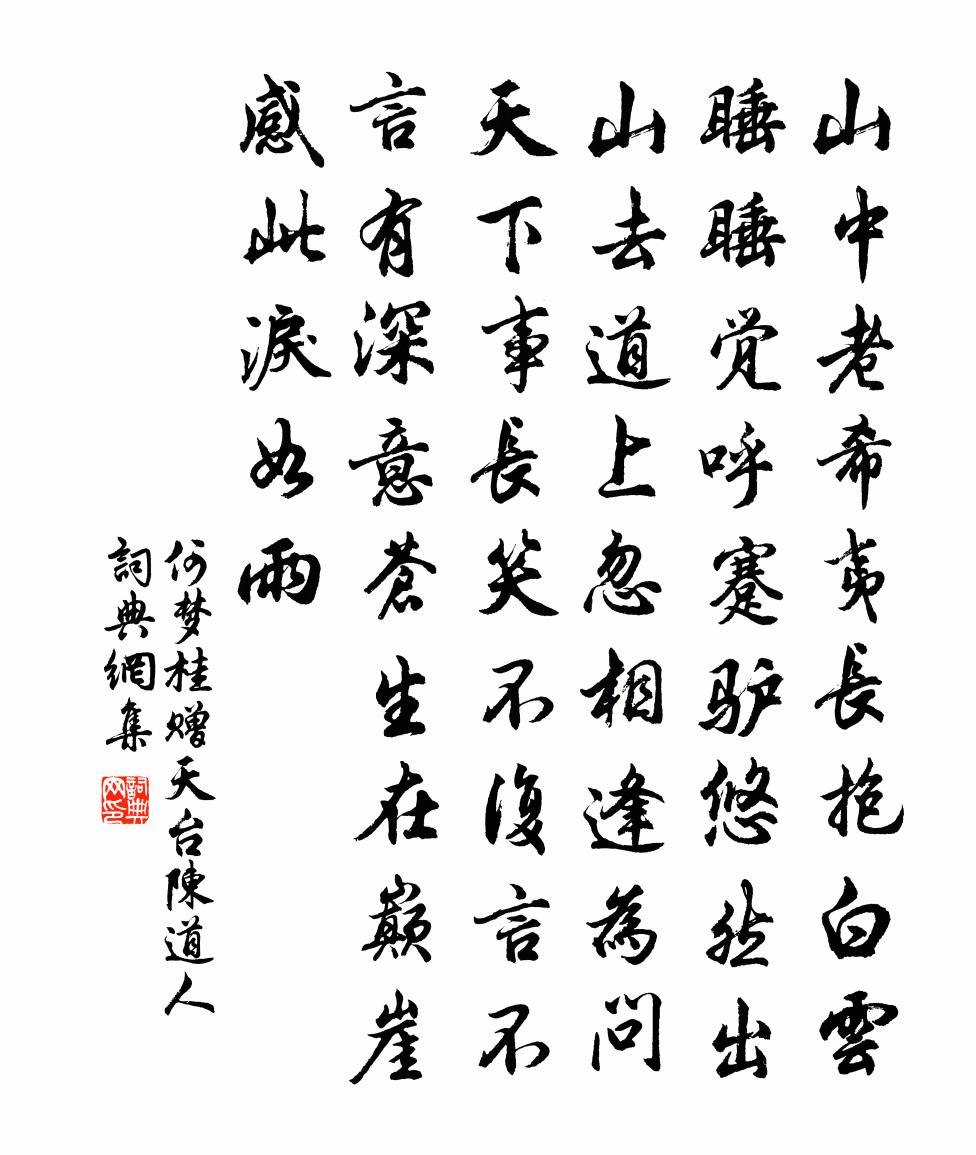 山中老希夷長抱白雲
睡睡觉呼蹇驴悠然出
山去道上忽相逢為問
天下事長笑不復言不
言有深意蒼生在巔崖
感此淚如雨
何梦桂赠天台陳道人
詞典網集
詞典网印